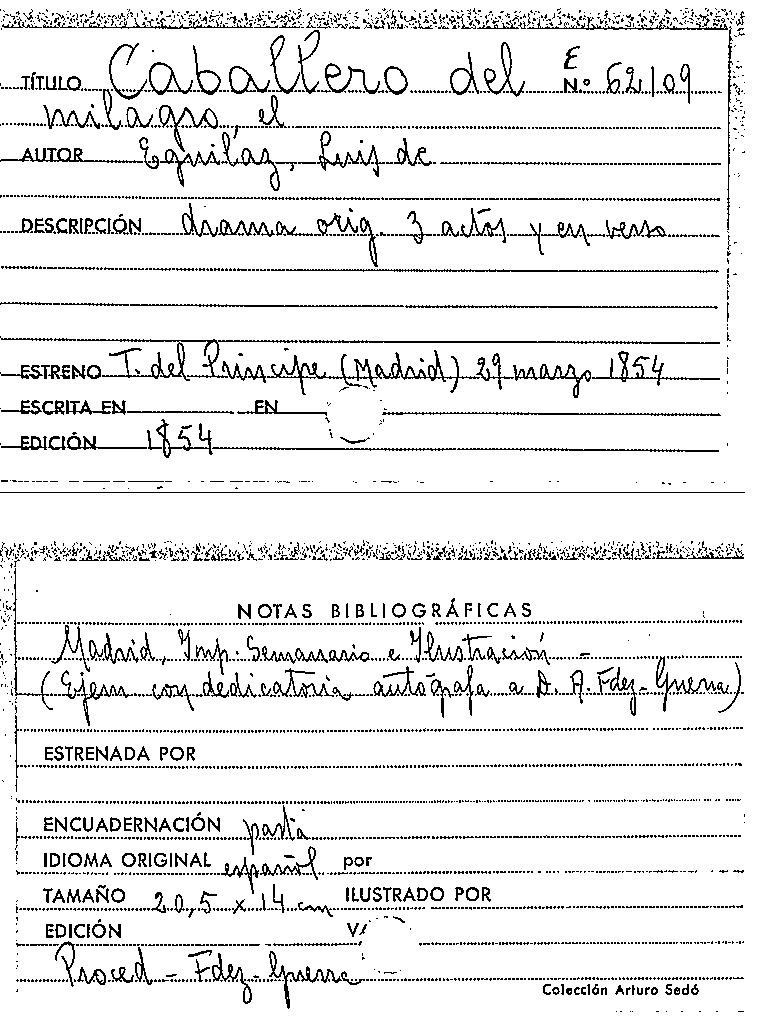 TÍTULO Caballero del E
N.º 62109
milagro, el
AUTOR Eguilaz, Luis de
DESCRIPCIÓN drama orig. 3 actos y en verso
ESTRENO T. del Principe (Madrid) 29 marzo 1854
ESCRITA EN EN
EDICIÓN 1854
NOTAS BIBLIOGRÁFICAS
Madrid, Imp. Semanario e Ilustración -
(Ejem con dedicatoria autógrafa a D. A. Fdez-Guerra)
ESTRENADA POR
ENCUADERNACIÓN pasta
IDIOMA ORIGINAL español por
TAMAÑO 20,5 x 14 cm ILUSTRADO POR
EDICIÓN
Proced - Fdez-Guerra
Colección Arturo Sedó